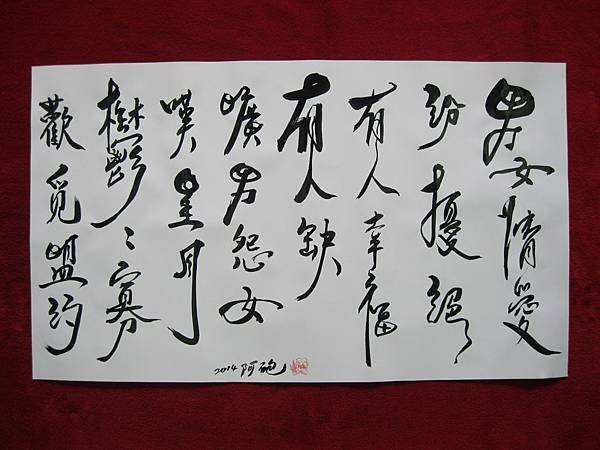 男女情愛
紛擾絕
有人幸福
有人缺
曠男怨女
嘆星月
鬱〻寡
歡覓盟約
2014 阿砲